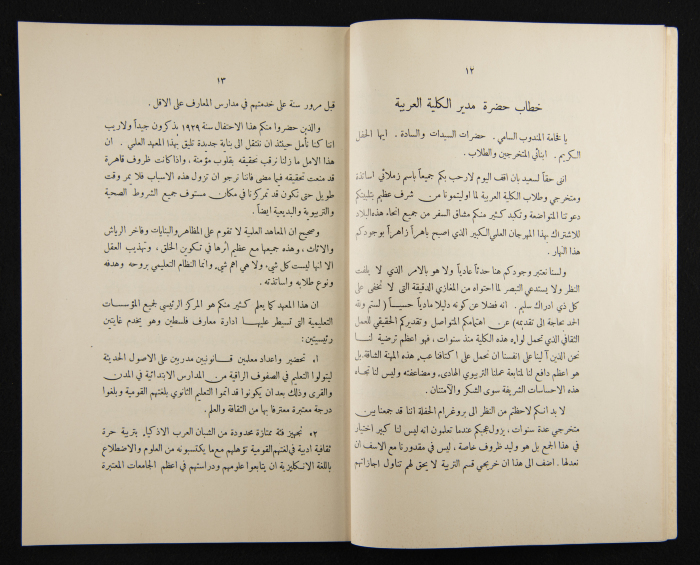 ١٢
خطاب حضرة مدير الكلية العربية
يا فخامة المندوب السامي . حضرات السيدات والسادة . ايها الحفل
الكريم . ابنائي المتخرجين والطلاب .
انني حقاً لسعيد بان اقف اليوم لارحب بكم جميعاً باسم زملائي اساتذة
ومتخرجي وطلاب الكلية العربية لما اوليتمونا من شرف عظيم بتلبيتكم
دعوتنا المتواضعة وتكبد كثير منكم مشاق السفر من جميع انحاء هذه البلاد
للاشتراك بهذا المهرجان العلمي الكبير الذي اصبح باهراً زاهراً بوجودكم
هذا النهار .
ولسنا نعتبر وجودكم هنا حدثاً عادياً ولا هو بالامر الذي لا يلفت
النظر ولا يستدعي التبصر لما احتواه من المغازي الدقيقة التي لا تخفى على
كل ذي ادراك سليم . انه فضلا عن كونه دليلا مادياً حسياً ( لستم ولله
الحمد بحاجة الى تقديمه) عن اهتمامكم المتواصل وتقديركم الحقيقي للعمل
الثقافي الذي تحمل لواءه هذه الكلية منذ سنوات ، فهو اعظم ترضية لنا
نحن الذين آلينا على انفسنا ان نحمل على اكتافنا عبء هذه المهنة الشاقة. بل
هو اعظم دافع لنا لمتابعة عملنا التربوي الهادىء ومضاعفته وليس لنا تجاه
هذه الاحساسات الشريفة سوى الشكر والامتنان .
لا بد انكم لاحظتم من النظر الى بروغرام الحفلة اننا قد جمعنا بين
متخرجي عدة سنوات ، يزول عجبكم عندما تعلمون انه ليس لنا كبير اختيار
في هذا الجمع بل هو وليد ظروف خاصة ، ليس في مقدورنا مع الاسف ان
نعدلها . اضف الى هذا ان خريجي قسم التربية لا يحق لهم تناول اجازاتهم
١٣
قبل مرور سنة على خدمتهم في مدارس المعارف على الاقل .
والذين حضروا منكم هذا الاحتفال سنة ١٩٢٩ يذكرون جيداً ولاريب
اننا كنا نأمل حينئذ ان ننتقل الى بناية جديدة تليق بهذا المعهد العلمي . ان
هذا الامل ما زلنا نرقب تحقيقه بقلوب مؤمنة ، واذا كانت ظروف قاهرة
قد منعت تحقيقه فيما مضى فاننا نرجو ان تزول هذه الاسباب فلا يمر وقت
طويل حتى نكون قد تمركزنا في مكان مستوف جميع الشروط الصحية
والتربيوية والبديعية ايضاً .
وصحيح ان المعاهد العلمية لا تقوم على المظاهر والبنايات وفاخر الرياش
والاثاث ، وهذه جميعها مع عظيم اثرها في تكوين الخلق ، وتهذيب العقل
الا انها ليست كل شيء ولا هي اهم شيء وانما النظام التعليمي بروحه وهدفه
ونوع طلابه واساتذته .
ان هذا المعهد كما يعلم كثير منكم هو المركز الرئيسي لجميع المؤسسات
التعليمية التي تسيطر عليها ادارة معارف فلسطين وهو يخدم غايتين
رئيسيتين :
١ . تحضير واعداد معلمين قانونيين مدربين على الاصول الحديثة
ليتولوا التعليم في الصفوف الراقية من المدارس الابتدائية في المدن
والقرى وذلك بعد ان يكونوا قد اتموا التعليم الثانوي بلغتهم القومية وبلغوا
درجة معتبرة معترفا بها من الثقافة والعلم .
٢ . تجهيز فئة ممتازة محدودة من الشبان العرب الاذكياء بتربية حرة
ثقافية ادبية في لغتهم القومية تؤهلهم مع ما يكتسبونه من العلوم والاضطلاع
باللغة الانكليزية ان يتابعوا علومهم ودراستهم في اعظم الجامعات المعتبرة